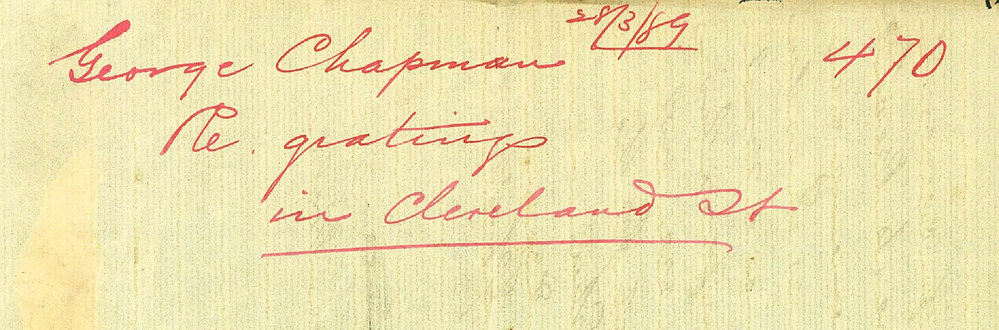 28/3/89
George Chapman 470
Re. gratings
in Cleveland St